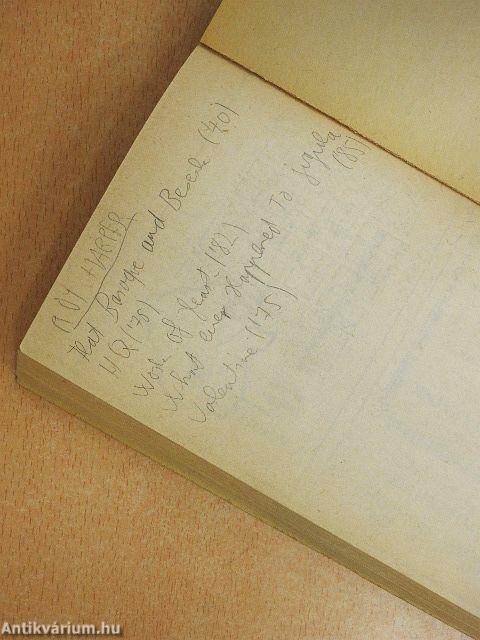 ROY HARPER
Flat Baroque and Beserk ('70)
HQ ('75)
Work of Heart ('82)
What ever Happened To Jugula
('85)
Valentine ('75)
Antikvárium.hu